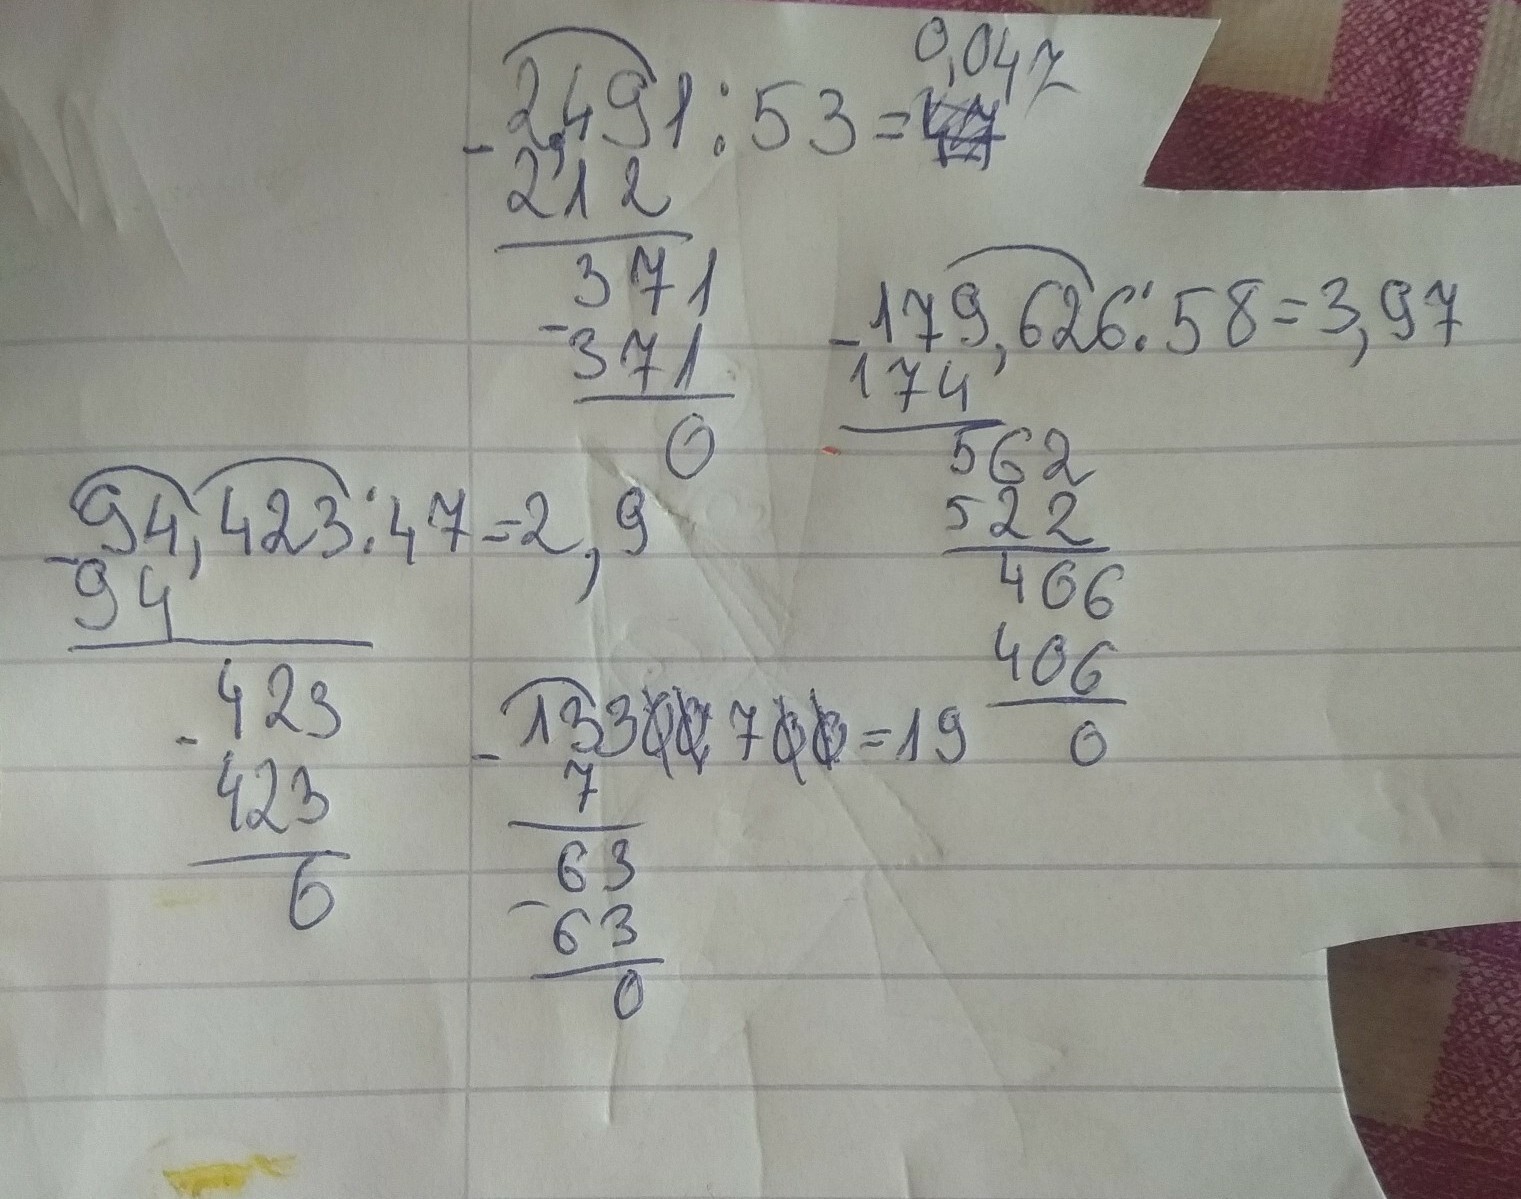 0,047
2,491:53=
- 212
371
- 371
0
179,626:58=3,97
- 174
562
522
406
406
0
94,423:47=2,9
- 94
423
- 423
0
13300 700=19
- 7
63
- 63
0